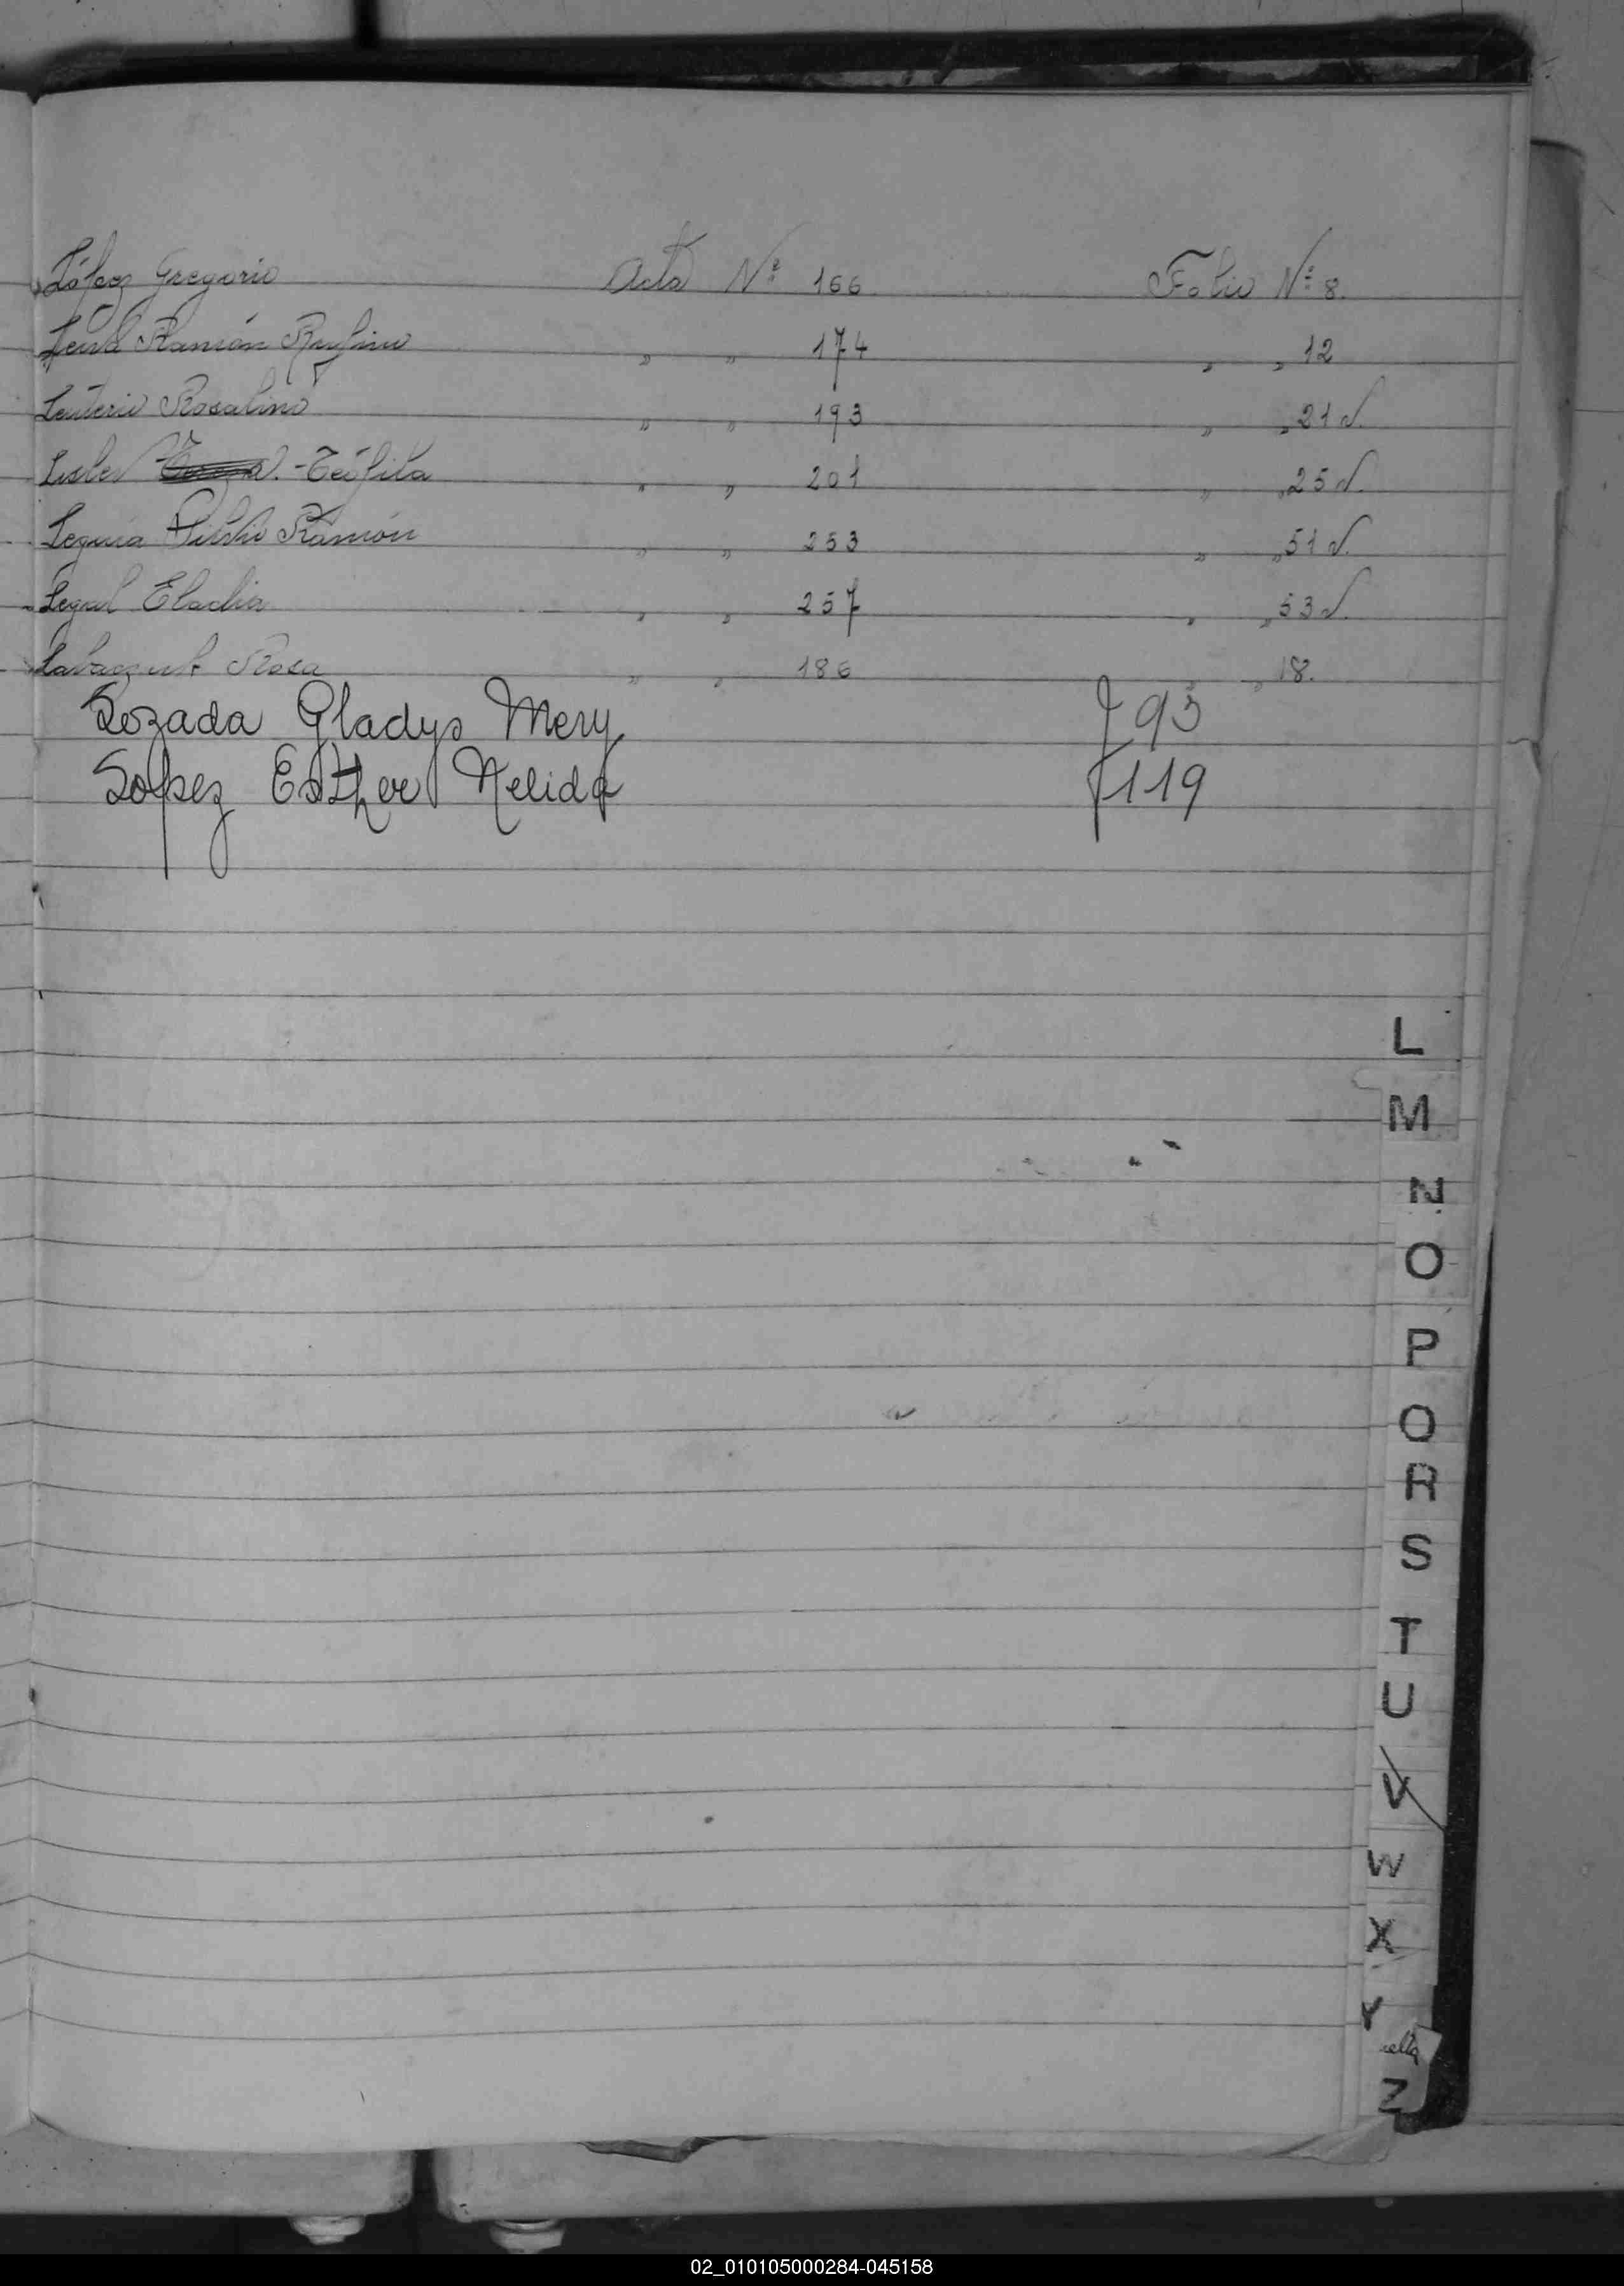 López Gregorio Acta Nº 166 Folio Nº 8.
Ramón Rufino " " 174 " " 12
Leuterio Rosalino " " 193 " " 21
Teófila " " 201 " " 25
Ramón " " 253 " " 51
Legal Eladia " " 257 " " 53
Rosa " " 186 " " 18.
Lozada Gladys Mery f 93
Lopez Esther Nelida f 119
L
M
N
O
P
Q
R
S
T
U
V
W
X
Y
Z
02_010105000284-045158